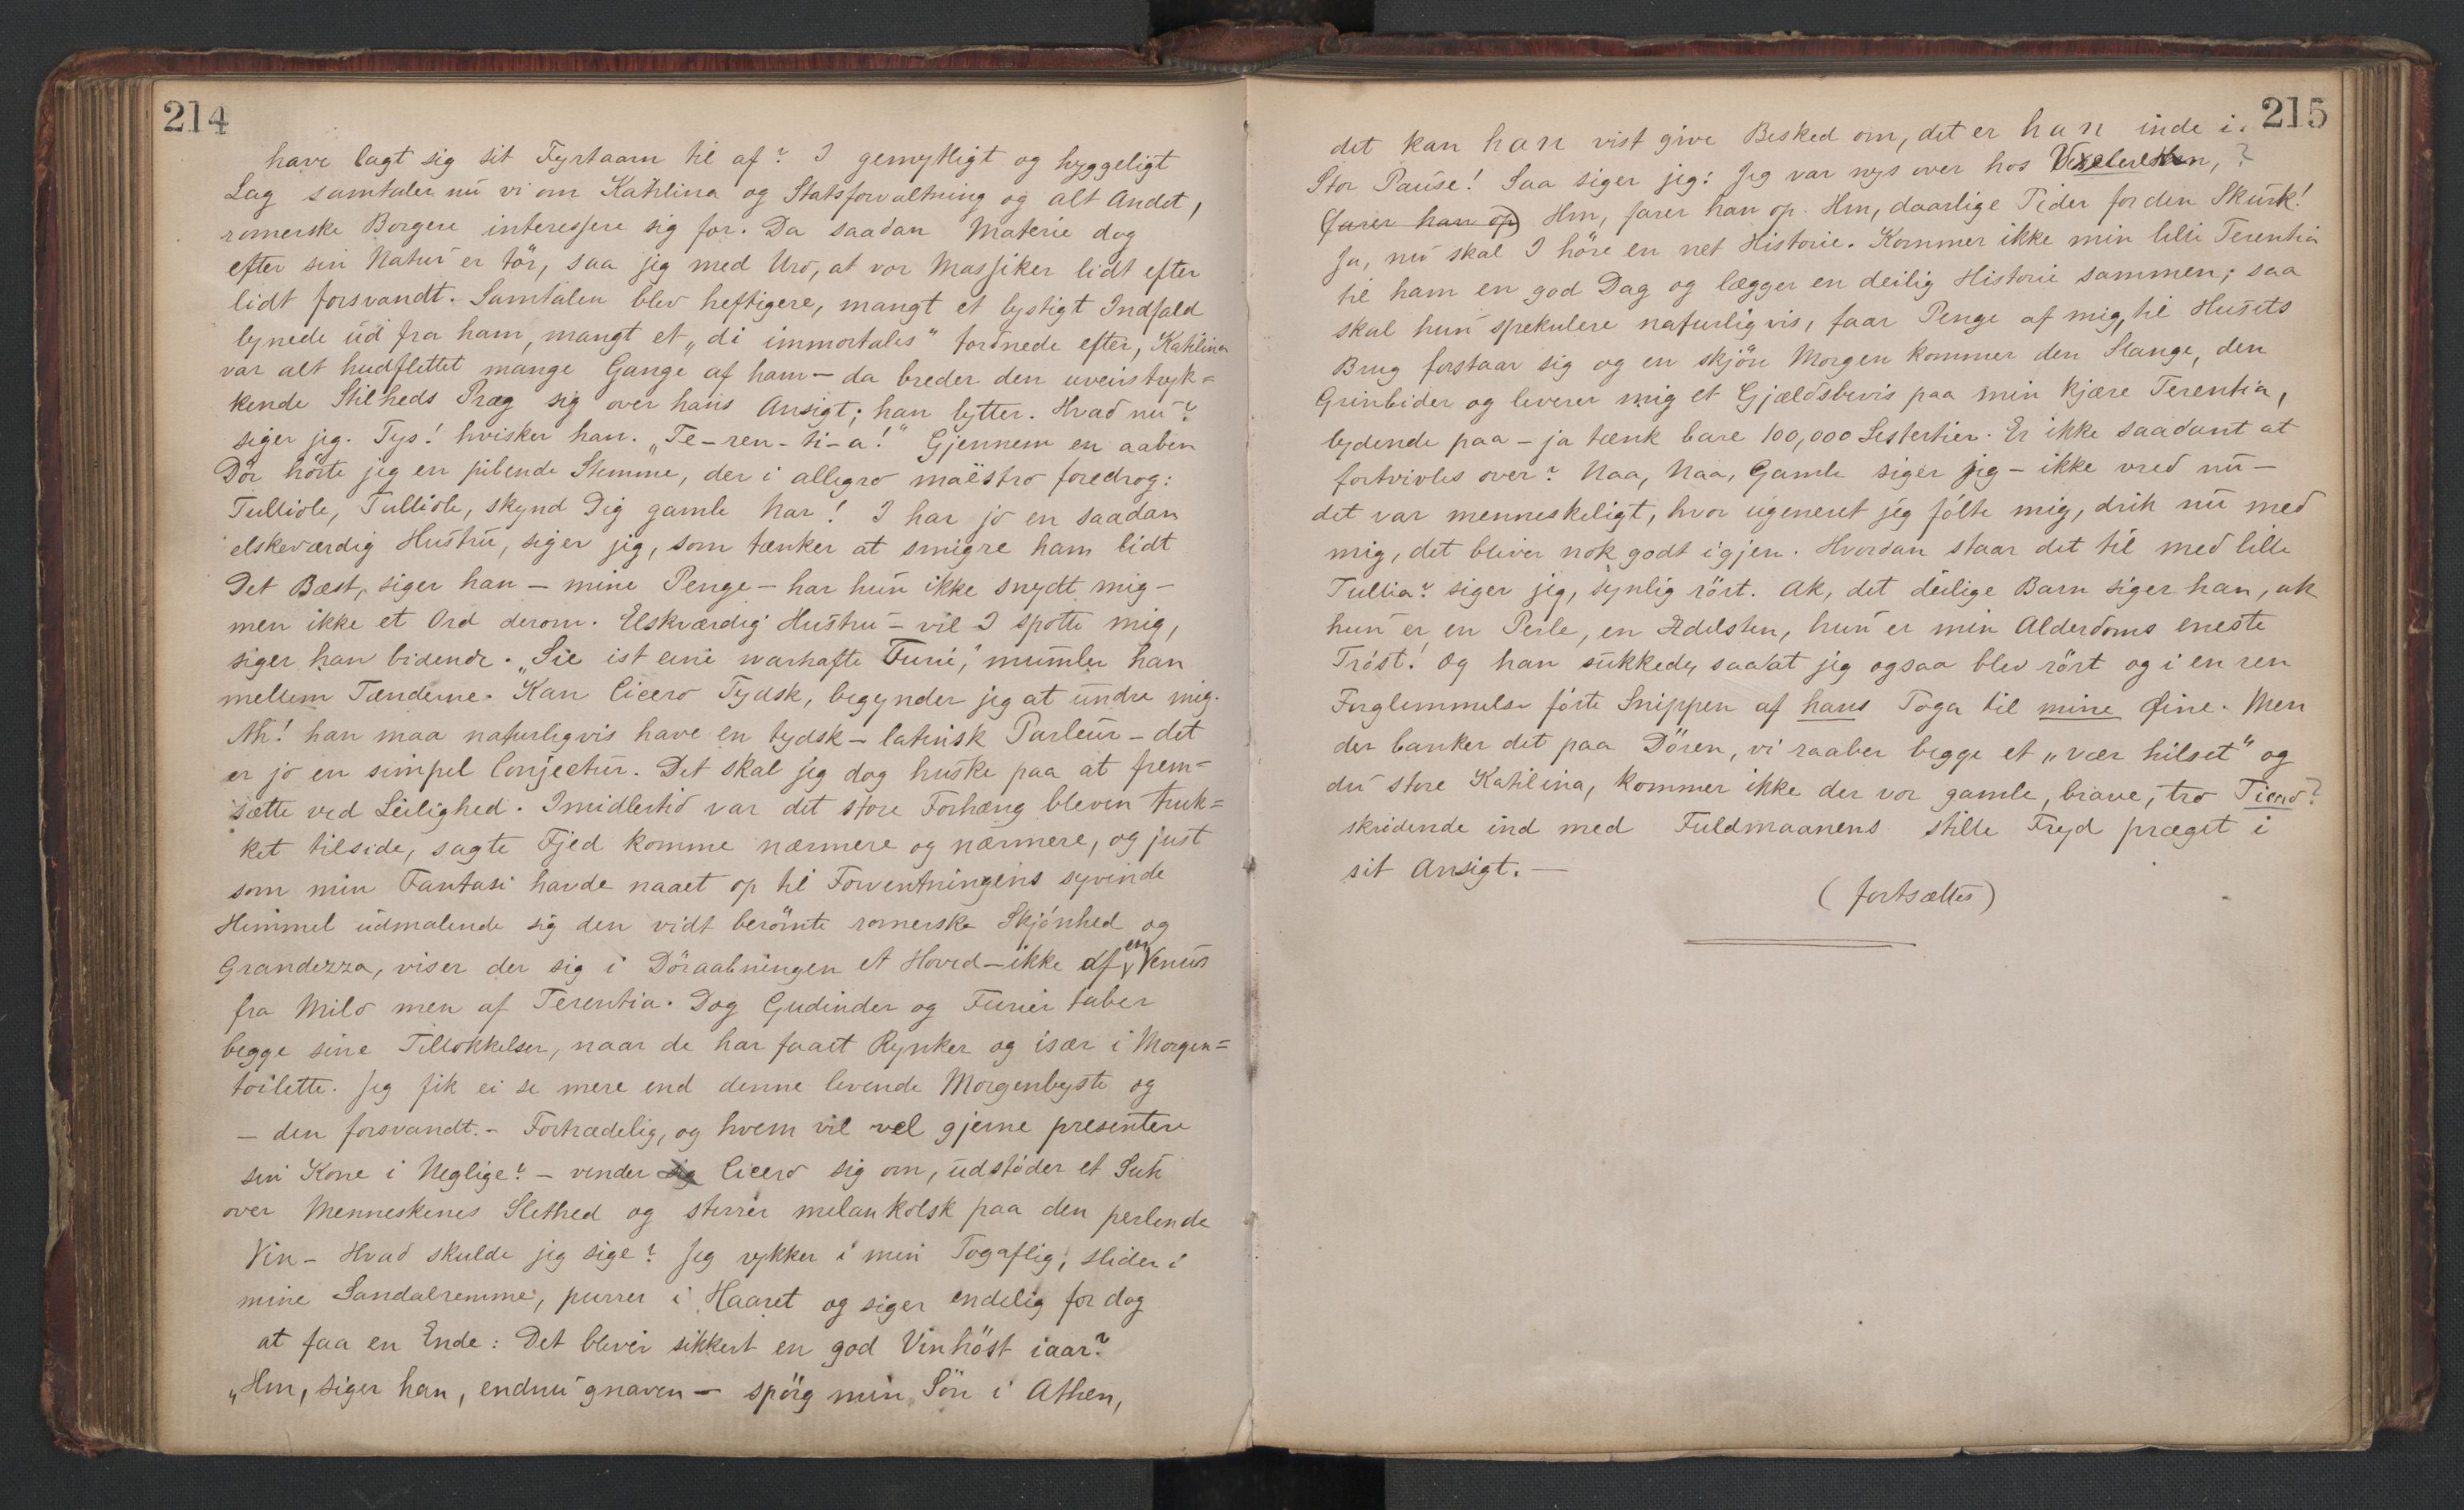 214
have lagt sig sit Fyrtaarn til af? I gemytligt og hyggeligt
Lag samtaler nu vi om Katilina og Statsforvaltning og alt Andet,
romerske Borgere interessere sig for. Da saadan Materie dog
efter sin Natur er tör, saa jeg med Uro, at vor Massiker lidt efter
lidt forsvandt. Samtalen blev heftigere, mangt et lystigt Indfald
lynede ud fra ham, mangt et „di immortales“ tordnede efter, Katilina
var alt hudflettet mange Gange af ham – da breder den uveirstryk=
kende Stilheds Præg sig over hans Ansigt; han lytter. Hvad nu?
siger jeg. Tys! hvisker han. „Te-ren-ti-a!“ Gjennem en aaben
Dör hörte jeg en pibende Stemme, der i allegro maëstro foredrog:
Tulliole, Tulliole, skynd Dig gamle Nar! I har jo en saadan
elskværdig Hustru, siger jeg, som tænker at smigre ham lidt
Det Bæst, siger han – mine Penge – har hun ikke snydt mig –
men ikke et Ord derom. Elskværdig Hustru – vil I spotte mig,
siger han bidende. „Sie ist eine warhafte Furie,“ mumler han
mellem Tænderne. Kan Cicero Tydsk, begynder jeg at undre mig.
Ah! han maa naturligvis have en tydsk-latinsk Parleur – det
er jo en simpel Conjectur. Det skal jeg dog huske paa at frem=
sætte ved Leilighed. Imidlertid var det store Forhæng bleven truk=
ket tilside, sagte Fjed komme nærmere og nærmere, og just
som min Fantasi havde naaet op til Forventningens syvende
Himmel udmalende sig den vidt berömte romerske Skjönhed og
Grandezza, viser der sig i Döraabningen et Hoved – ikke af en Venus
fra Milo men af Terentia. Dog Gudinder og Furier taber
begge sine Tillokkelser, naar de har faaet Rynker og især i Morgen=
toilette. Jeg fik ei se mere end denne levende Morgenbyste og
– den forsvandt. – Fortrædelig, og hvem vil vel gjerne presentere
sin Kone i Neglige? – vender sig Cicero sig om, udstöder et Suk
over Menneskenes Slethed og stirrer melankolsk paa den perlende
Vin – Hvad skulde jeg sige? Jeg rykker i min Togaflig, slider i
mine Sandalremme, purrer i Haaret og siger endelig for dog
at faa en Ende: Det bliver sikkert en god Vinhöst iaar?
„Hm, siger han, endnu gnaven – spörg min Sön i Athen,
215
det kan han vist give Besked om, det er han inde i.
Stor Pause! Saa siger jeg: Jeg var nys over hos ?
(farer han op) Hm, farer han op. Hm, daarlige Tider for den Skurk!
Ja, nu skal I höre en net Historie. Kommer ikke min lille Terentia
til ham en god Dag og lægger en deilig Historie sammen; saa
skal hun spekulere naturligvis, faar Penge af mig, til Husets
Brug forstaar sig og en skjön Morgen kommer den Slange, den
Grinbider og leverer mig et Gjældsbevis paa min kjære Terentia,
lydende paa – ja tænk bare 100,000 Sestertier. Er ikke saadant at
fortvivles over? Naa, Naa, Gamle siger jeg – ikke vred nu –
det var menneskeligt, hvor ugeneret jeg fölte mig, drik nu med
mig, det bliver nok godt igjen. Hvordan staar det til med lille
Tullia? siger jeg, synlig rört. Ak, det deilige Barn siger han, ak
hun er en Perle, en Ædelsten, hun er min Alderdoms eneste
Tröst! Og han sukkede, saa at jeg ogsaa blev rört og i en ren
Forglemmelse förte Snippen af hans Toga til mine Öine. Men
der banker det paa Dören, vi raaber begge et „vær hilset“ og
du store Katilina, kommer ikke der vor gamle, brave, tro Tiero?
skridende ind med Fuldmaanens stille Fryd præget i
sit Ansigt. –
(fortsættes)